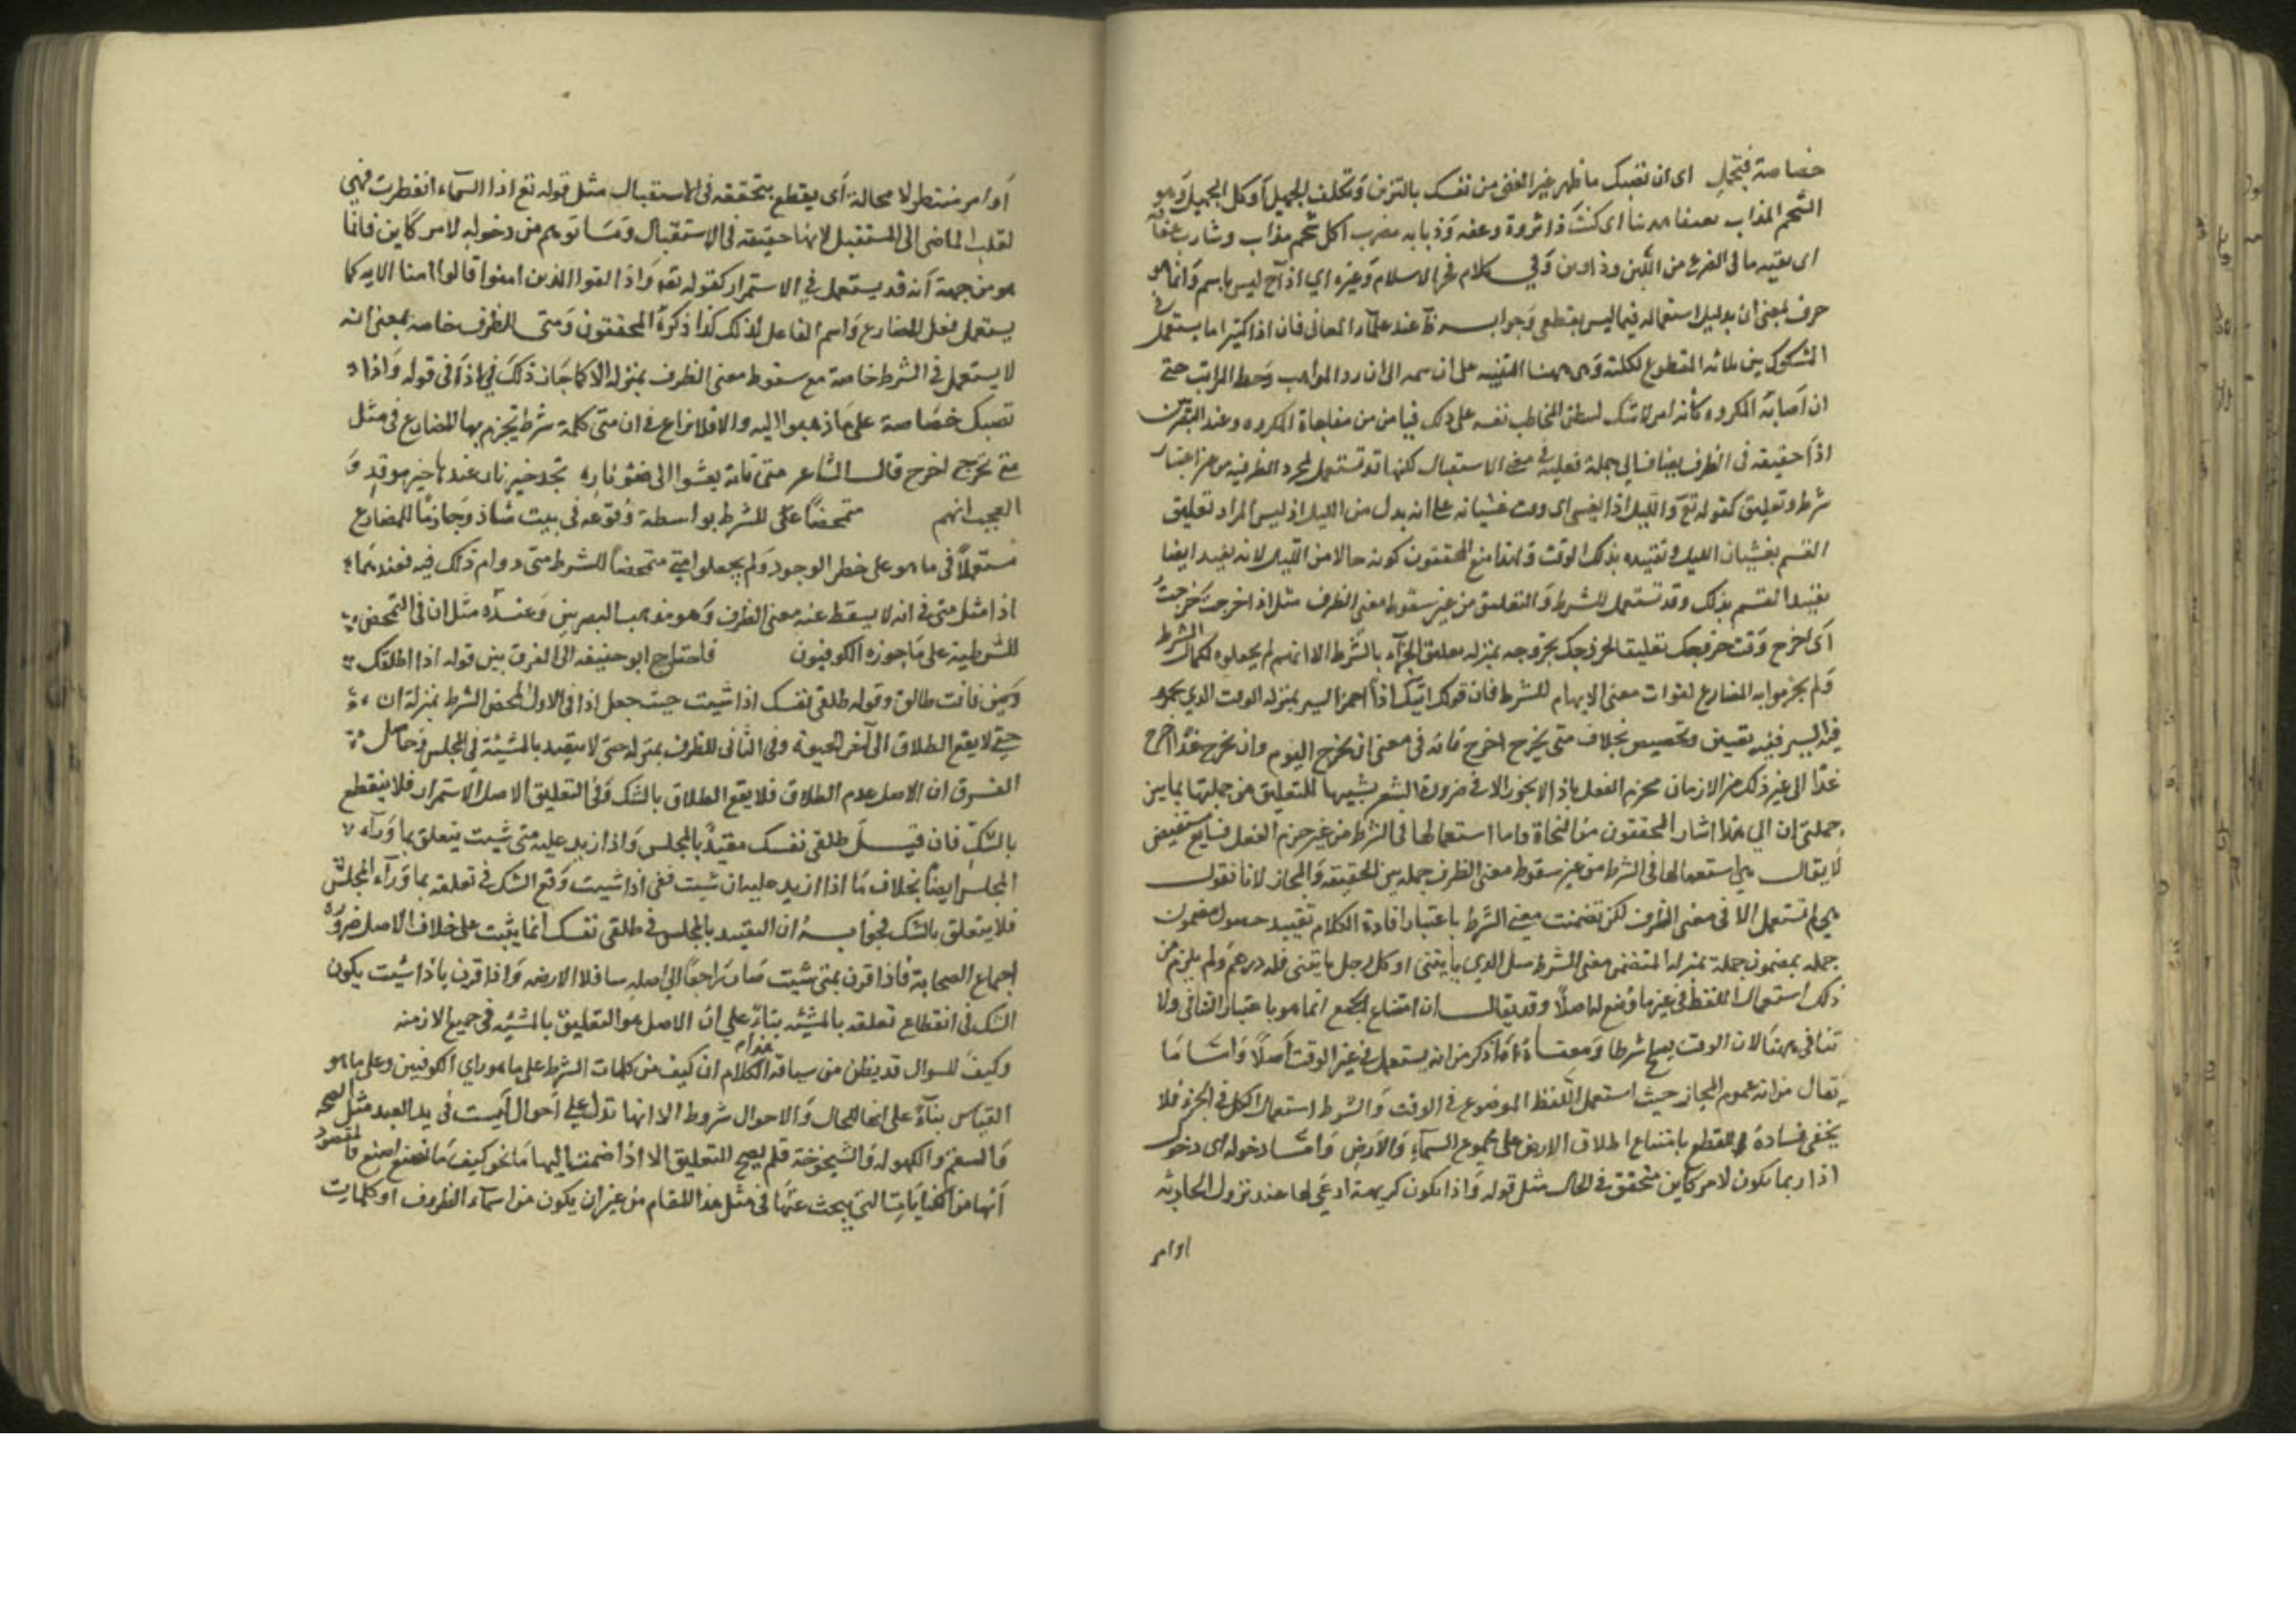 خصاصة فتجمل اى ان تصبك ما ظهر خير الغنى من نفسك بالتزين وتكلف الجميل او كل الجميل وهو
الشحم المذاب تعففا اى كنت ذا ثروة وعفه اكل شحم مذاب وشارب عفافة
اى بقيه ما فى الضرع من اللبن وفي كلام فخر الاسلام وغيره اي اذا ح ليس باسم وانما هو
حرف بمعنى ان بدليل استعماله فيما ليس بقطعى وجوابه ظ عند علماء المعانى فان اذا كثيرا ما يستعمل فى
المشكوك بتنزيله المقطوع لنكتة وهى ههنا التنبيه على ان رد المواهب وحط المراتب حتى
ان اصابة المكروه كأنه امر لا شك ليوطن المخاطب نفسه على ذلك من مفاجاة المكروه وعند البصريين
اذا حقيقه فى الظرف يضاف الى جملة فعلية فى معنى الاستقبال لكنها قد تستعمل لمجرد الظرفيه من غير اعتبار
شرط وتعليق كقوله تع والليل اذا يغشى اى وقت غشيانه على انه بدل من الليل اذ ليس المراد تعليق
القسم بغشيان الليل وتقييده بذلك الوقت ولهذا منع المحققون كونه حالا من الليل لانه يفيد ايضا
تقييد القسم بذلك وقد تستعمل للشرط والتعليق من غير سقوط معنى الظرف مثل اذا خرجت خرجت
اى اخرج وقت خروجك تعليقا لخروجك بخروجه بمنزله تعليق الجزآء بالشرط الا انهم لم يجعلوه لكمال الشرط
ولم يجزموا به المضارع لفوات معنى الابهام للشرط فان قولك اتيك اذا احمر البسر بمنزله الوقت الذي يحمر
فيه البسر ففيه تعيين وتخصيص بخلاف متى يخرج اخرج فانه فى معنى ان تخرج اليوم وان تخرج غدا اخرج
غدا الى غير ذلك من الازمان فجزم الفعل باذا لا يجوز الا فى ضرورة الشعر تشبيها للتعليق من جملتها بما بين
جملتى ان الي هذا اشار المحققون من النحاة واما استعمالها فى الشرط من غير جزم الفعل فشايع مستفيض
لا يقال ففي استعمالها فى الشرط من غير سقوط معنى الظرف جمله بين الحقيقه والمجاز لانا نقول
هي لم تستعمل الا فى معنى الظرف لكن تضمنت معنى الشرط باعتبار افادة الكلام تقييد حصول مضمون
جمله بمضمون جملة بمنزله المتضمن معنى الشرط مثل الذي ياتينى او كل رجل ياتينى فله درهم ولم يلزم من
ذلك استعمال اللفظ فى غير ما وضع له اصلا وقد يقال ان امتناع الجمع انما هو باعتبار التنافى ولا
تنافى ههنا لان الوقت يصلح شرطا ومعناه ما ذكر من انه يستعمل فى غير الوقت اصلا واما ما
يقال من انه عموم المجاز حيث استعمل اللفظ الموضوع فى الوقت والشرط استعمال الكل فى الجزء فلا
يخفى فساده للقطع بامتناع اطلاق الارض على مجموع السمآء والارض واما دخوله اى دخول
اذا ربما يكون لامر كاين متحقق فى الحال مثل قوله واذا تكون كريهة ادعى لها عند نزول الحادثه
اوامر
اوامر منتظر لا محالة اى يقطع بتحققه فى الاستقبال مثل قوله تع اذا السمآء انفطرت فهي
لقلب الماضى الى المستقبل لانها حقيقه فى الاستقبال وما توهم من دخوله لامر كاين فانما
هو من جهة انه قد يستعمل في الاستمرار كقوله تعه واذا لقوا الذين امنوا قالوا امنا الايه كما
يستعمل فعل المضارع واسم الفاعل لذلك كذا ذكره المحققون ومتى للظرف خاصه بمعنى انه
لا يستعمل فى الشرط خاصة مع سقوط معنى الظرف بمنزله الا كما جاز ذلك فى اذا فى قوله واذا
تصبك خصاصة على ما ذهبوا اليه والا فلا نزاع فى ان متى كلمة شرط يجزم بها المضارع فى مثل
متى تخرج اخرج قال الشاعر متى تاته يعشوا الى ضوء ناره تجد خير نار عندها خير موقد و
العجب انهم متمحضا على للشرط بواسطة وقوعه فى بيت شاذ وجازما للمضارع
مستعملا فى ما هو على خطر الوجود ولم يجعلوا متى متمحضا للشرط متى دوام ذلك فيه فعندهما
اذا مثل متى فى انه لا يسقط عنه معنى الظرف وهو مذهب البصرين وعنده مثل ان فى التمحض
للشرطية على ما جوزه الكوفيون فاحتاج ابو حنيفه الى الفرق بين قوله اذا اطلقك
وبين فانت طالق وقوله طلقى نفسك اذا شيت حيث جعل اذا فى الاول لمحض الشرط بمنزلة ان
حتى لا يقع الطلاق الى آخر الحيوة وفى الثانى للظرف بمنزله متى لا يتقيد بالمشيئة فى المجلس وحاصل
الفرق ان الاصل عدم الطلاق فلا يقع الطلاق بالشك وفى التعليق الاصل الاستمرار فلا ينقطع
بالشك فان قيل طلقى نفسك مقيد بالمجلس واذا زيد عليه متى شيت يتعلق بما ورآء
المجلس ايضا بخلاف ما اذا زيد عليه ان شيت ففى اذا شيت وقع الشك فى تعلقه بما ورآء المجلس
فلا يتعلق بالشك فجوابه ان التقييد بالمجلس فى طلقى نفسك انما يثبت على خلاف الاصل ضروره
اجماع الصحابة فاذا قرن بمتى شيت صار راجعا الى اصله واذا قرن باذا شيت يكون
الشك فى انقطاع تعلقه بالمشيئه بناء علي ان الاصل هو التعليق بالمشيئه فى جميع الازمنه
وكيف للسوال قد يظن من سياقه الكلام ان كيف من كلمات الشرط على ما هو راي الكوفيين وعلى ما هو
القياس بنآء على انها للحال والاحوال شروط الا انها تدل على احوال ليست فى يد العبد مثل الصحه
والسقم والكهوله والشيخوخة فلم يصح للتعليق الا اذا ضمت اليها ما نحو كيف ما تصنع اصنع فالمقصود
انها من التى يبحث عنها فى مثل هذا المقام من غير ان يكون من اسمآء الظروف او كلمات